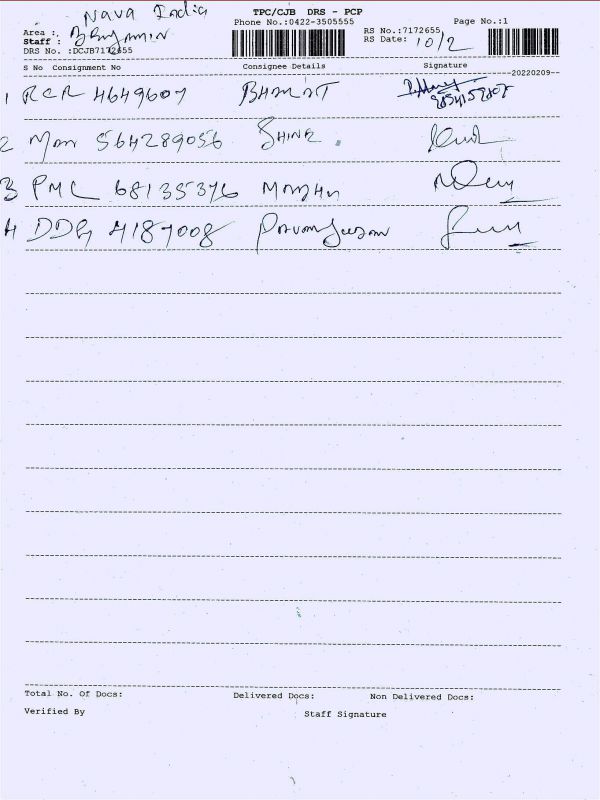 Nava India
TPC/CJB DRS - PCP
Phone No.:0422-3505555
Page No.:1
Area :
Staff : Benjamin
DRS No. :DCJB7172655
RS No.:7172655
RS Date: 10/2
S No Consignment No Consignee Details Signature
--20220209--
1 RCR 4649607 BHARAT
2 564289056 SHINE
3 PMC 68135376
4 DDG 4187008
Total No. Of Docs: Delivered Docs: Non Delivered Docs:
Verified By Staff Signature